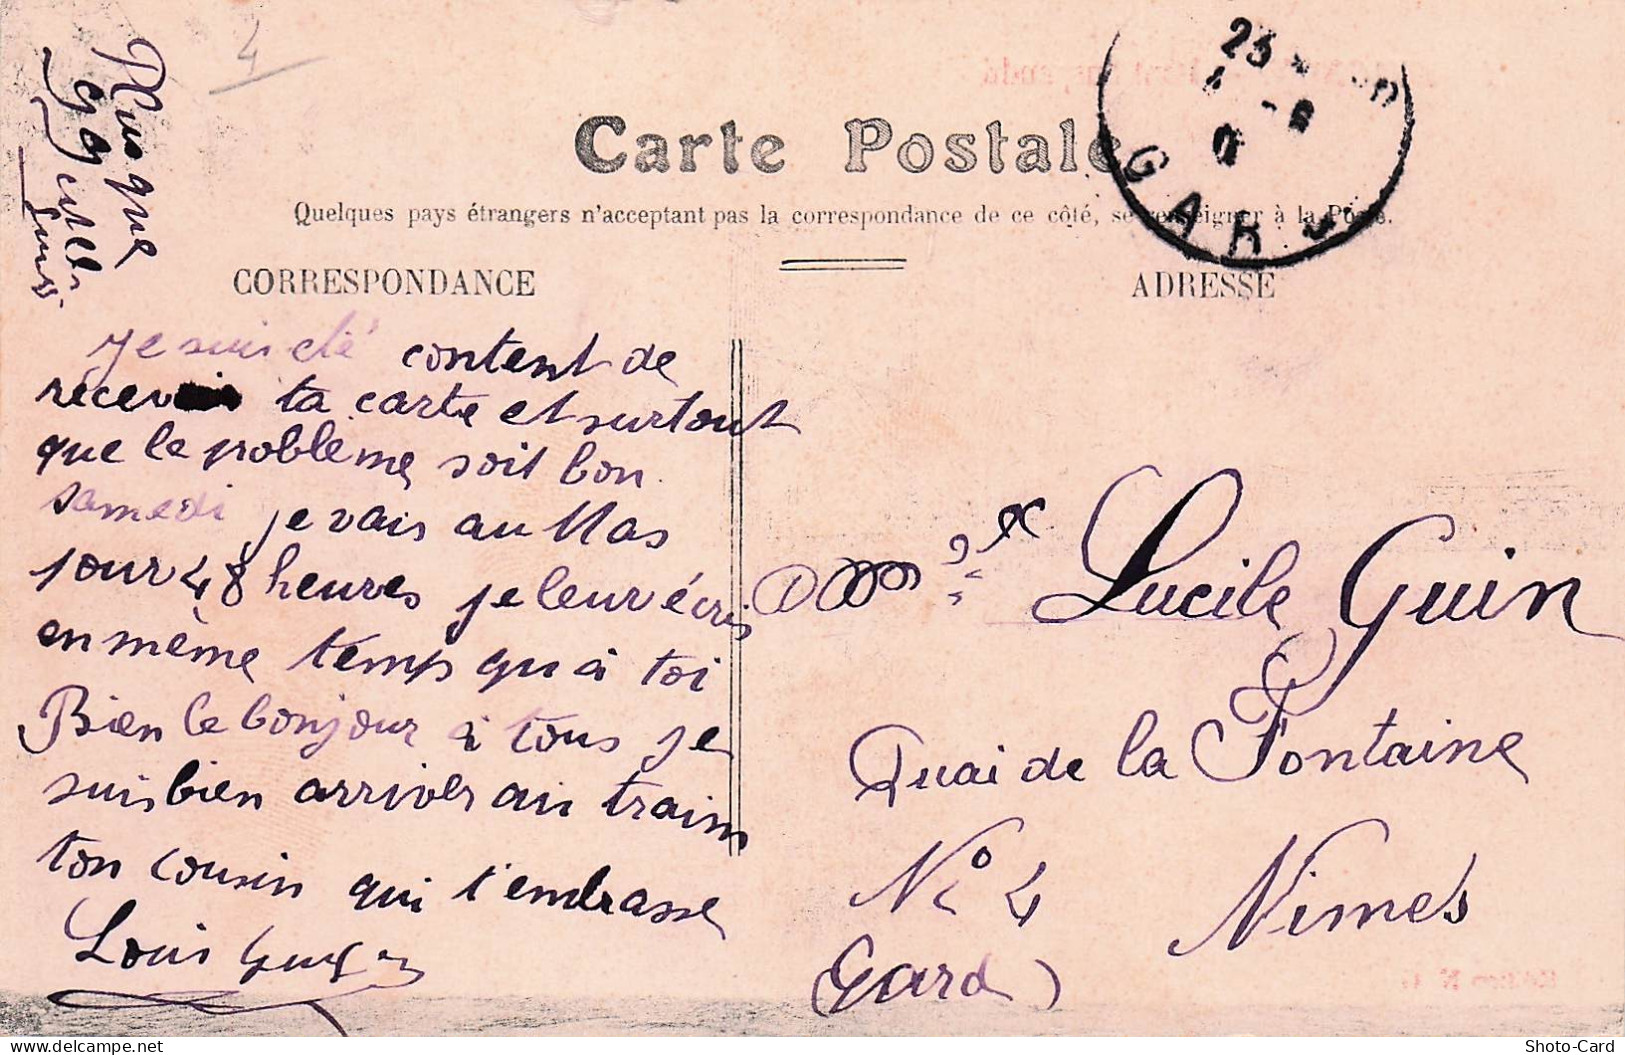 4
Carte Postale
Quelques pays étrangers n'acceptant pas la correspondance de ce côté, se renseigner à la Poste.
CORRESPONDANCE
ADRESSE
GARD
je suis été content de
recevoir ta carte et surtout
que le problème soit bon
samedi je vais au Mas
pour 48 heures je leur écris
en même temps qu'à toi
Bien le bonjour à tous je
suis bien arriver au train
ton cousin qui t'embrasse
Louis
Lucile Guin
Quai de la Fontaine
No 4 Nimes
(Gard)
delcampe.net
Shoto-Card